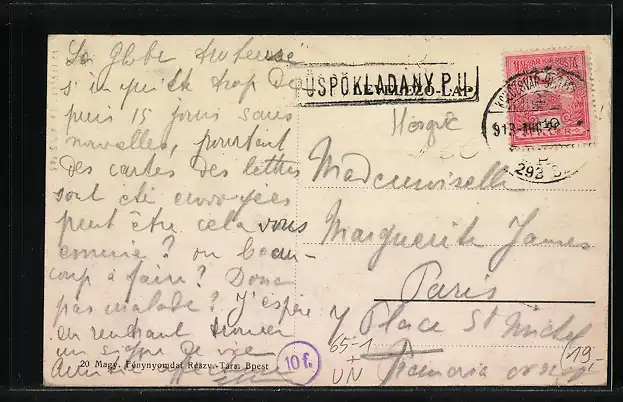 La Globe trotteuse
s'inquiète trop de
puis 15 jours sans
nouvelles, pourtant
des cartes des lettres
sont été envoyées
peut être cela vous
ennuie? ou beau-
coup à faire? Donc
pas malade? J'espère
en rentrant trouver
un signe de vie
20 Magy. Fénynyomdai Részv.-Társ. Bpest
ÜSPÖKLADANY P.U.
LEVELEZŐ-LAP
MAGYAR KIR. POSTA
10
913
293
Mademoiselle
Marguerite James
Paris
7 Place St Michel
10 f.
65-1
+
UN
19.-